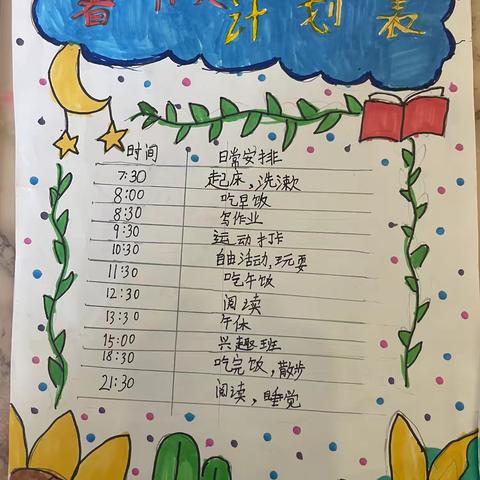 暑 计划表
时间 日常安排
7:30 起床,洗漱
8:00 吃早饭
8:30 写作业
9:30 运动打卡
10:30 自由活动,玩耍
11:30 吃午饭
12:30 阅读
13:30 午休
15:00 兴趣班
18:30 吃完饭,散步
21:30 阅读,睡觉